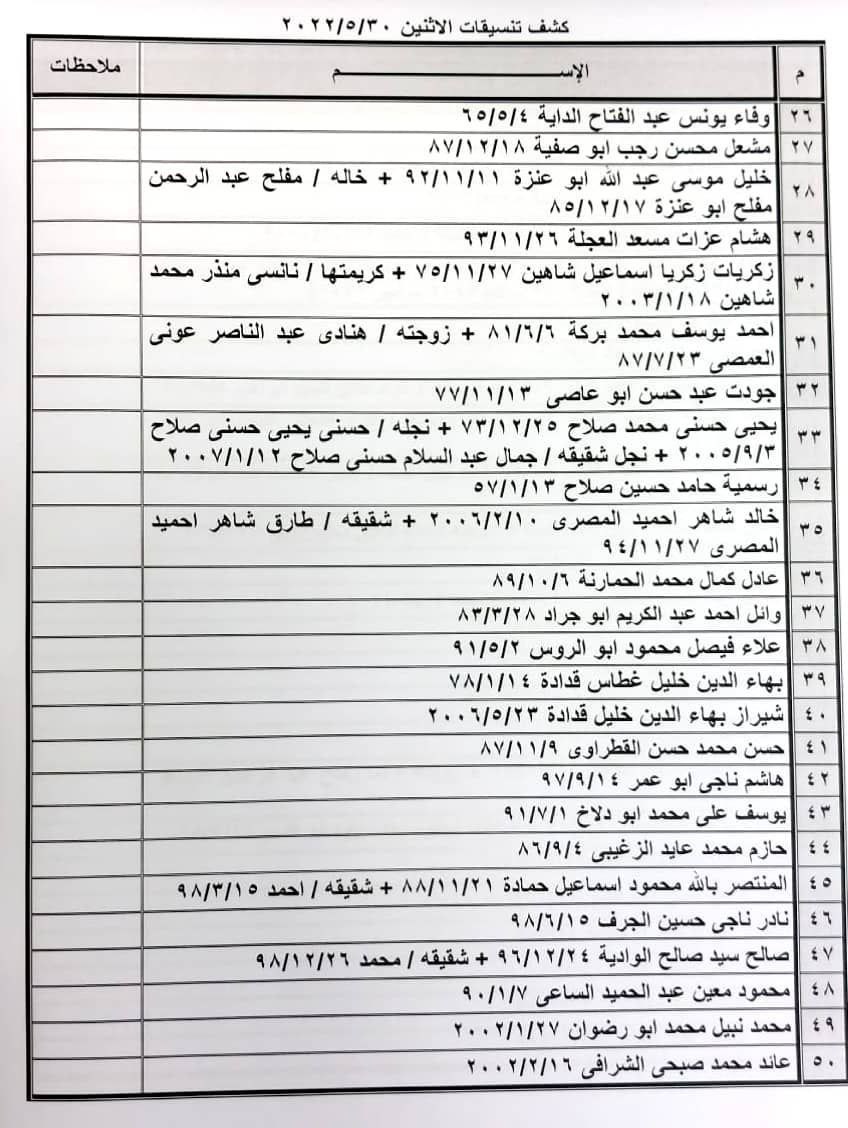 كشف تنسيقات الاثنين ٢٠٢٢/٥/٣٠
م الإســـــــــــــــم ملاحظات
٢٦ وفاء يونس عبد الفتاح الداية ٦٥/٥/٤
٢٧ مشعل محسن رجب ابو صفية ٨٧/١٢/١٨
٢٨ خليل موسى عبد الله ابو عنزة ٩٢/١١/١١ + خاله / مفلح عبد الرحمن
مفلح ابو عنزة ٨٥/١٢/١٧
٢٩ هشام عزات مسعد العجلة ٩٣/١١/٢٦
٣٠ زكريات زكريا اسماعيل شاهين ٧٥/١١/٢٧ + كريمتها / نانسى منذر محمد
شاهين ٢٠٠٣/١/١٨
٣١ احمد يوسف محمد بركة ٨١/٦/٦ + زوجته / هنادى عبد الناصر عونى
العمصى ٨٧/٧/٢٣
٣٢ جودت عبد حسن ابو عاصى ٧٧/١١/١٣
٣٣ يحيى حسنى محمد صلاح ٧٣/١٢/٢٥ + نجله / حسنى يحيى حسنى صلاح
٢٠٠٥/٩/٣ + نجل شقيقه / جمال عبد السلام حسنى صلاح ٢٠٠٧/١/١٢
٣٤ رسمية حامد حسين صلاح ٥٧/١/١٣
٣٥ خالد شاهر احميد المصرى ٢٠٠٦/٢/١٠ + شقيقه / طارق شاهر احميد
المصرى ٩٤/١١/٢٧
٣٦ عادل كمال محمد الحمارنة ٨٩/١٠/٦
٣٧ وائل احمد عبد الكريم ابو جراد ٨٣/٣/٢٨
٣٨ علاء فيصل محمود ابو الروس ٩١/٥/٢
٣٩ بهاء الدين خليل غطاس قدادة ٧٨/١/١٤
٤٠ شيراز بهاء الدين خليل قدادة ٢٠٠٦/٥/٢٣
٤١ حسن محمد حسن القطراوى ٨٧/١١/٩
٤٢ هاشم ناجى ابو عمر ٩٧/٩/١٤
٤٣ يوسف على محمد ابو دلاخ ٩١/٧/١
٤٤ حازم محمد عايد الزغيبى ٨٦/٩/٤
٤٥ المنتصر بالله محمود اسماعيل حمادة ٨٨/١١/٢١ + شقيقه / احمد ٩٨/٣/١٥
٤٦ نادر ناجى حسين الجرف ٩٨/٦/١٥
٤٧ صالح سيد صالح الوادية ٩٦/١٢/٢٤ + شقيقه / محمد ٩٨/١٢/٢٦
٤٨ محمود معين عبد الحميد الساعى ٩٠/١/٧
٤٩ محمد نبيل محمد ابو رضوان ٢٠٠٢/١/٢٧
٥٠ عائد محمد صبحى الشرافى ٢٠٠٢/٢/١٦